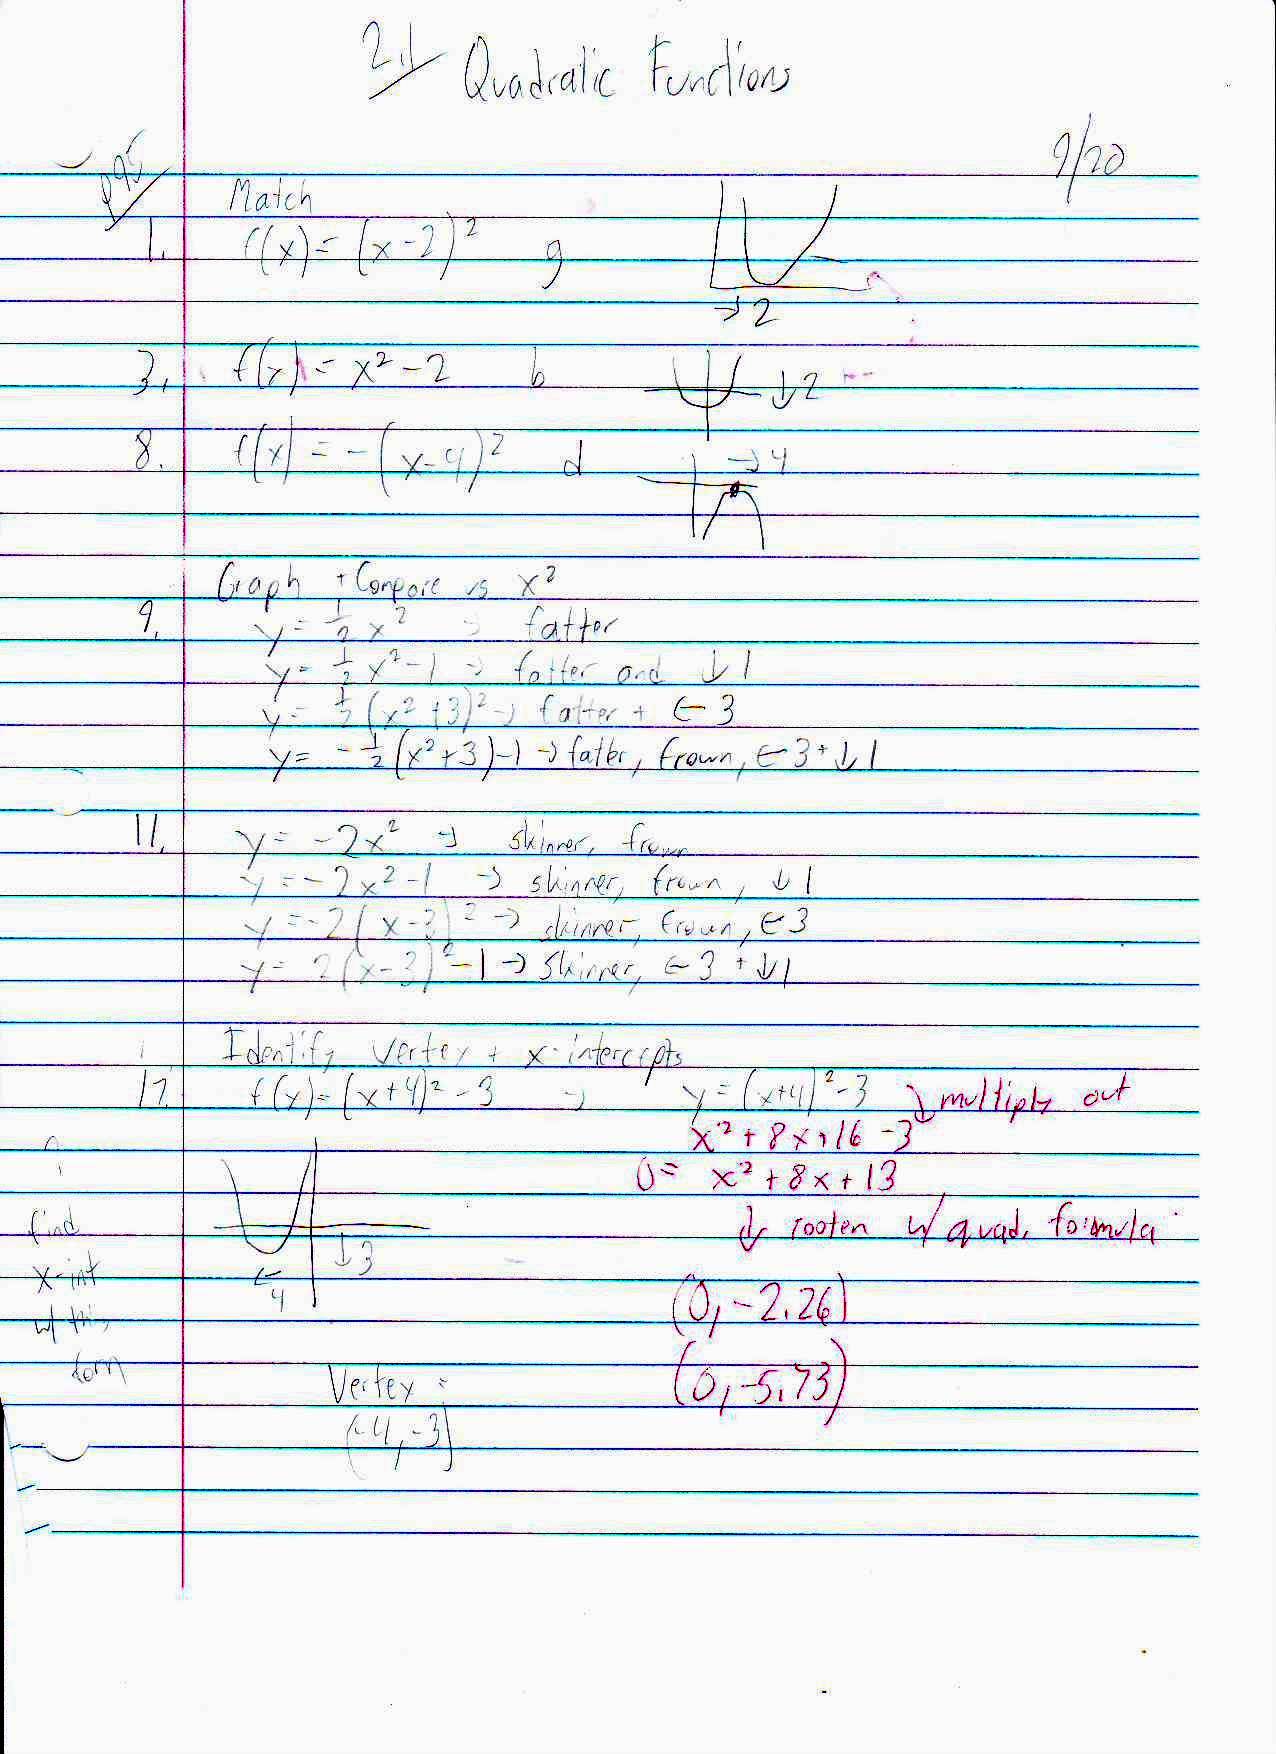 2.1 Quadratic Functions
9/20
p95
Match
1. f(x) = (x-2)² g
→ 2
3. f(x) = x² - 2 b ↓2
8. f(x) = -(x-4)² d → 4
Graph + Compare vs x²
9. y = 1/2 x² → fatter
y = 1/2 x² - 1 → fatter and ↓ 1
y = 1/2 (x² + 3)² → fatter + ← 3
y = -1/2 (x² + 3) - 1 → fatter, frown, ← 3 + ↓ 1
11. y = -2x² → skinner, frown
y = -2x² - 1 → skinner, frown, ↓ 1
y = -2(x-3)² → skinner, frown, ← 3
y = 2(x-3)² - 1 → skinner, ← 3 + ↓ 1
Identify vertex + x-intercepts
17. f(x) = (x+4)² - 3 → y = (x+4)² - 3 ↓ multiply out
x² + 8x + 16 - 3
0 = x² + 8x + 13
↓ rooten w/ quad. formula
find
x-int
w/ this
form
↓ 3
← 4
(0, -2.26)
(0, -5.73)
Vertex =
(-4, -3)